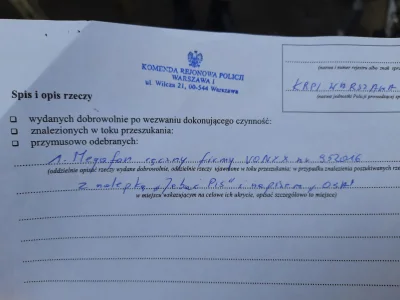 KOMENDA REJONOWA POLICJI
WARSZAWA I
ul. Wilcza 21, 00-544 Warszawa
(nazwa i numer rejestru albo znak
KRP I WARSZAWA
(nazwa jednostki Policji prowadzącej
Spis i opis rzeczy
❑ wydanych dobrowolnie po wezwaniu dokonującego czynność:
❑ znalezionych w toku przeszukania:
❑ przymusowo odebranych:
1. Megafon ręczny firmy VONYX nr 952016
(oddzielnie opisać rzeczy wydane dobrowolnie, oddzielnie rzeczy ujawnione w toku przeszukania; w przypadku znalezienia poszukiwanych
z nalepką „Jebać PiS" i napisem „OSA"
w miejscu wskazującym na celowe ich ukrycie, opisać szczegółowo to miejsce)